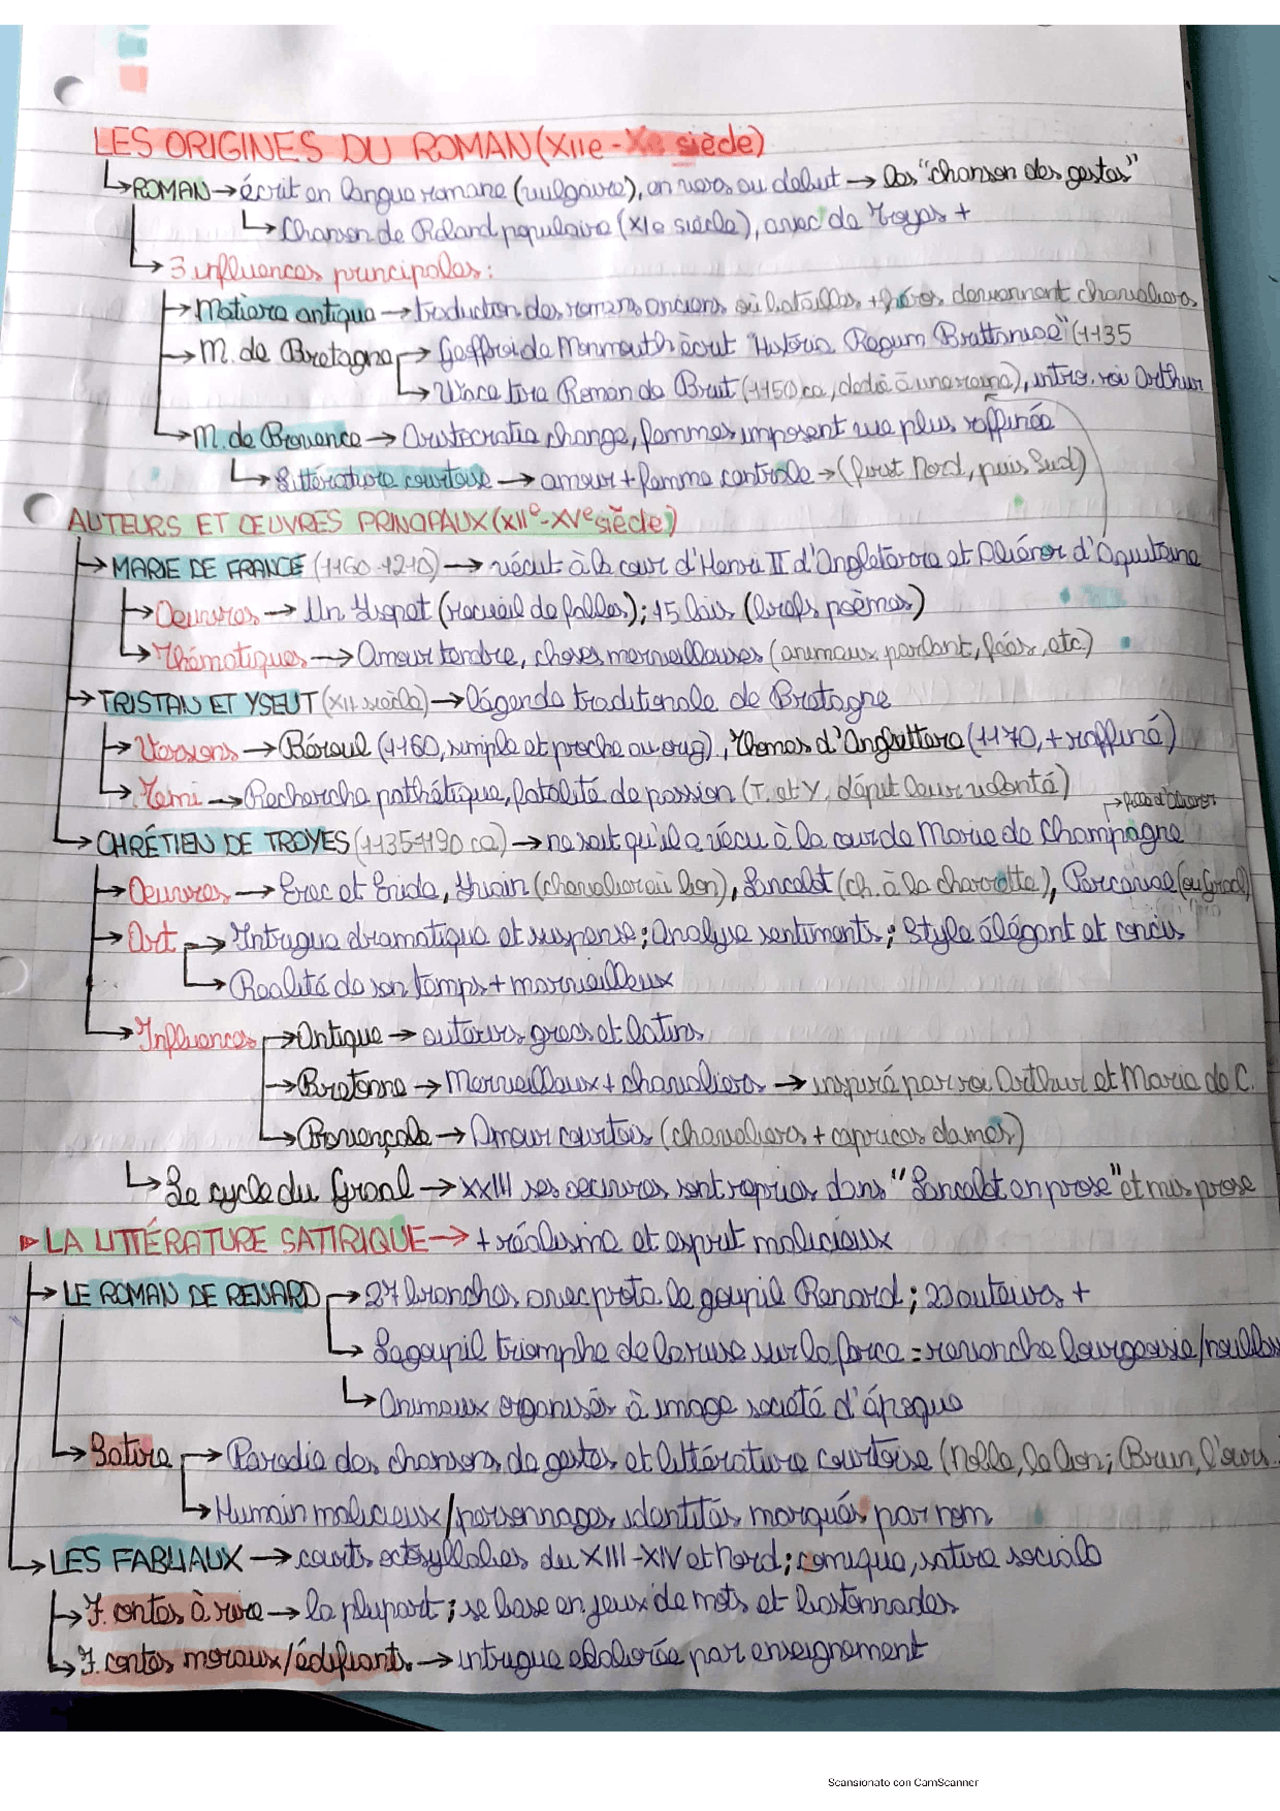 LES ORIGINES DU ROMAN (XIIe - Xe siècle)
ROMAN → écrit en langue romane (vulgaire), en vers au début → les "chanson des gestes"
Chanson de Roland populaire (XIe siècle), avec de Troyes +
3 influences principales:
Matière antique → traduction des romans anciens où batailles + héros deviennent chevaliers
M. de Bretagne → Geoffroi de Monmouth écrit "Historia Regum Brittaniae" (1135
→ Wace tire Roman de Brut (1150 ca, dédié à une reine), intro. roi Arthur
M. de Provence → Aristocratie change, femmes imposent vie plus raffinée
Littérature courtoise → amour + femme contrôle → (tout Nord, puis Sud)
AUTEURS ET ŒUVRES PRINCIPAUX (XIIe-XVe siècle)
→ MARIE DE FRANCE (1160-1210) → vécut à la cour d'Henri II d'Angleterre et Eléanor d'Aquitaine
→ Oeuvres → Un Yspet (recueil de fables); 15 lais (brefs poèmes)
→ Thématiques → Amour tendre, choses merveilleuses (animaux parlant, fées, etc.)
→ TRISTAN ET YSEUT (XII siècle) → légende traditionale de Bretagne
→ Versions → Béroul (1160, simple et proche au orig), Thomas d'Anglettere (1170, + raffiné)
→ Temi → Recherche pathétique, fatalité de passion (T. et Y, dépit leur volonté)
→ CHRÉTIEN DE TROYES (1135-1190 ca) → ne sait qu'il a vécu à la cour de Marie de Champagne
→ Oeuvres → Erec et Enide, Yvain (chevalier au lion), Lancelot (ch. à la charrette), Perceval (ou Graal)
→ Art → Intrigue dramatique et suspense; Analyse sentiments; Style élégant et concis
→ Réalité de son temps + merveilleux
→ Influences → Antique → auteurs grecs et latins
→ Bretonne → Merveilleux + chevaliers → inspiré par roi Arthur et Marie de C.
→ Provençale → Amour courtois (chevaliers + caprices dames)
Le cycle du Graal → XXIII ses oeuvres sont reprises dans "Lancelot en prose" et mis prose
LA LITTÉRATURE SATIRIQUE → + réalisme et esprit malicieux
→ LE ROMAN DE RENARD → 27 branches avec prota. le goupil Renard; 20 auteurs +
→ Le goupil triomphe de la ruse sur la force = revanche bourgeoisie/nobles
→ Animaux organisés à image société d'époque
→ Satire → Parodie des chansons de gestes et littérature courtoise (Noble, le lion; Brun, l'ours..
→ Humain malicieux/personnages identités marqués par nom
→ LES FABLIAUX → courts octosyllabes du XIII-XIV et Nord; comique, satire sociale
→ F. contes à rire → la plupart; se base en jeux de mots et bastonnades
→ F. contes moraux/édifiants → intrigue élaborée par enseignement
Scansionato con CamScanner